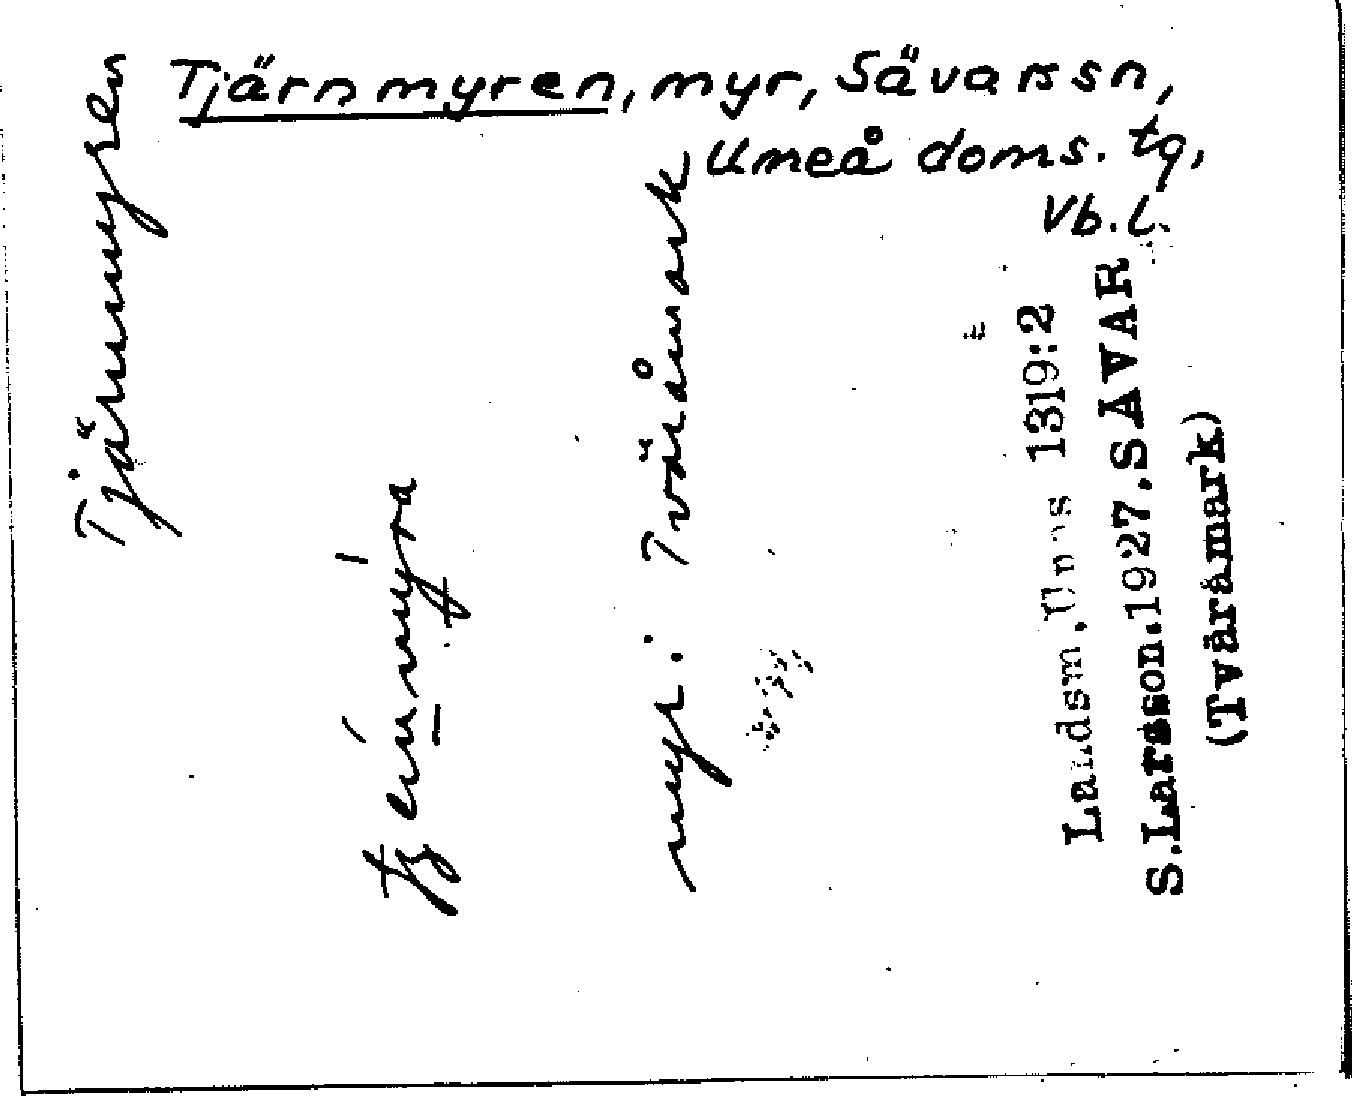 Tjärnmyren, myr, Sävars sn,
Umeå doms. tg,
Vb. l.
Tjärnmyren
myr. Tväråmark
Landsm. 1319:2
S.Larsson.1927.SÄVAR
(Tväråmark)